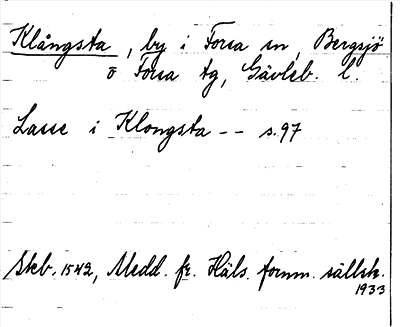 Klångsta, by i Forsa sn, Bergsjö
o Forsa tg, Gävleb. l.
Lasse i Klongsta -- s.97
Skb. 1542, Medd. fr. Häls. fornm. sällsk.
1933